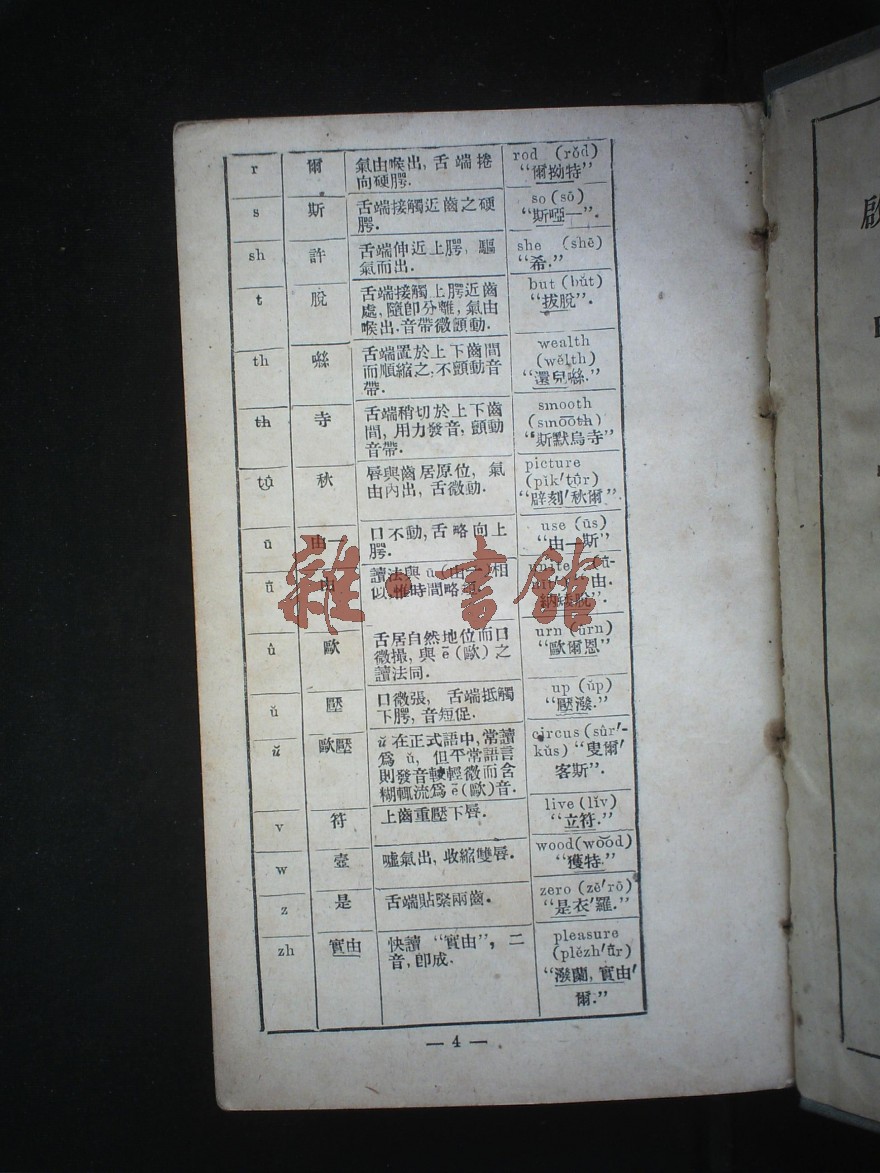 r 爾 氣由喉出, 舌端捲 rod (rŏd)
向硬腭. “爾拗特”
s 斯 舌端接觸近齒之硬 so (sō)
腭. “斯啞一”.
sh 許 舌端伸近上腭, 驅 she (shē)
氣而出. “希.”
t 脫 舌端接觸上腭近齒 but (bŭt)
處, 隨卽分離, 氣由 “拔脫”.
喉出. 音帶微顫動.
th 㗭 舌端置於上下齒間 wealth
而順縮之, 不顫動音 (wĕlth)
帶. “還兒㗭.”
th 寺 舌端稍切於上下齒 smooth
間, 用力發音, 顫動 (smōōth)
音帶. “斯默烏寺”
tu̇ 秋 唇與齒居原位, 氣 picture
由內出, 舌微動. (pĭk′tu̇r)
“辟刻′秋爾”.
ū 由一 口不動, 舌略向上 use (ūs)
腭. “由一斯”
由 讀法與 ū (由一) 相 unite
以, 惟時間略
û 歐 舌居自然地位而口 urn (ûrn)
微撮, 與 ẽ (歐) 之 “歐爾恩”
讀法同.
ŭ 壓 口微張, 舌端抵觸 up (ŭp)
下腭, 音短促. “壓潑”
ŭ 歐壓 ŭ 在正式語中, 常讀 circus (sûr′-
爲 ŭ, 但平常語言 kŭs) “叟爾′
則發音較輕微而含 客斯”.
糊輒流爲 ẽ (歐) 音.
v 符 上齒重壓下唇. live (lĭv)
“立符.”
w 壺 噓氣出, 收縮雙唇. wood (wŏŏd)
“獲特.”
z 是 舌端貼緊兩齒. zero (zē′rō)
“是衣′羅.”
zh 實由 快讀 “實由”, 二 pleasure
音, 卽成. (plĕzh′ũr)
“潑蘭, 實由′
爾.”
— 4 —
雜·書館